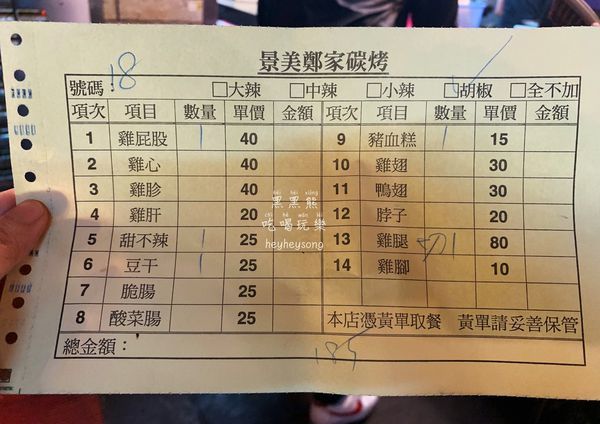 景美鄭家碳烤
號碼：18 □大辣 □中辣 □小辣 □胡椒 □全不加
項次 項目 數量 單價 金額 項次 項目 數量 單價 金額
1 雞屁股 1 40 9 豬血糕 1 15
2 雞心 40 10 雞翅 30
3 雞胗 40 11 鴨翅 30
4 雞肝 20 12 脖子 20
5 甜不辣 1 25 13 雞腿 切1 80
6 豆干 1 25 14 雞腳 10
7 脆腸 25
8 酸菜腸 25 本店憑黃單取餐 黃單請妥善保管
總金額： 185
hēi hēi xióng
黑黑熊
chī hē wán lè
吃喝玩樂
heyheysong